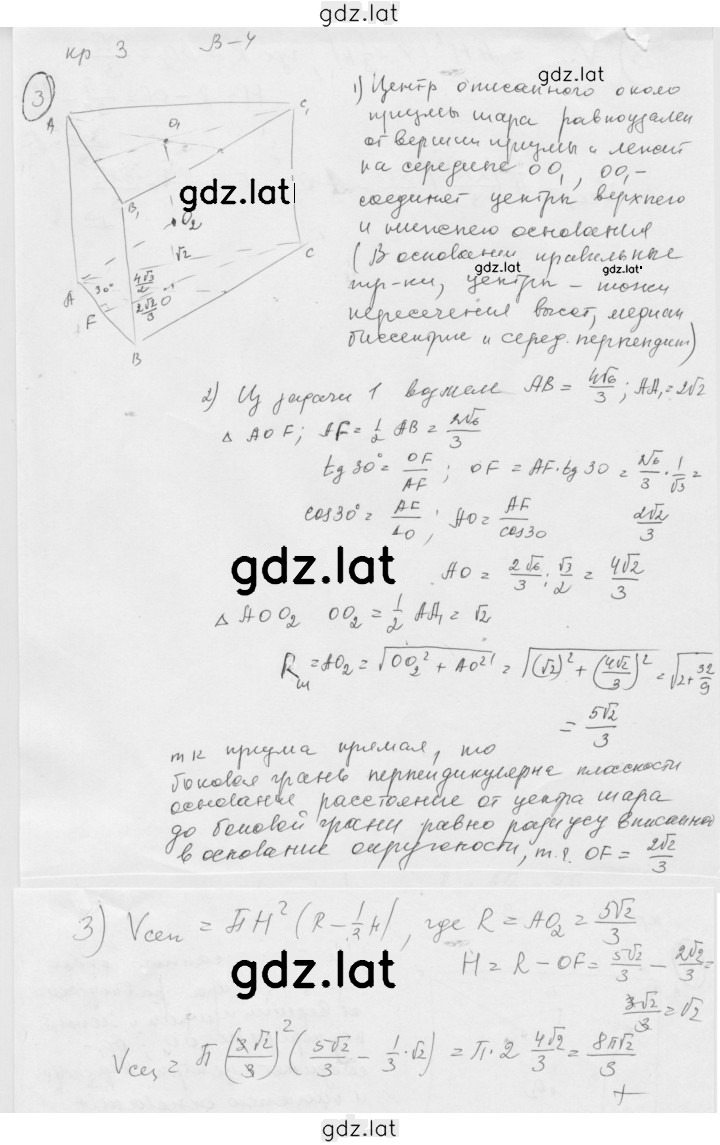 gdz.lat
кр 3 В-4
3
1) Центр описанного около
gdz.lat
призмы шара равноудален
от вершин призмы и лежит
на середине OO₁, OO₁ –
gdz.lat
соединяет центры верхнего
и нижнего основания
(В основании правильные
gdz.lat
gdz.lat
тр-ки, центры – точки
пересечения высот, медиан
биссектрис и серед. перпендик)
A
C₁
O₁
B₁
O₂
√2
C
A
30°
4√3/2
2√2/3
O
F
B
2) Из задачи 1 возьмем AB = 4√6/3; AA₁ = 2√2
△ AOF; AF = 1/2 AB = 2√6/3
tg 30° = OF/AF; OF = AF·tg 30 = 2√6/3 · 1/√3 =
2√2/3
cos 30° = AF/AO; AO = AF/cos 30
gdz.lat
AO = 2√6/3 : √3/2 = 4√2/3
△ AOO₂ OO₂ = 1/2 AA₁ = √2
Rш = AO₂ = √(OO₂² + AO²) = √((√2)² + (4√2/3)²) = √(2 + 32/9)
= 5√2/3
т к призма прямая, то
боковая грань перпендикулярна плоскости
основания расстояние от центра шара
до боковой грани равно радиусу вписанной
в основание окружности, т.е. OF = 2√2/3
3) Vсег = ПH² (R – 1/3 H), где R = AO₂ = 5√2/3
gdz.lat
H = R – OF = 5√2/3 – 2√2/3 =
3√2/3 = √2
Vсег = П (3√2/3)² (5√2/3 – 1/3·√2) = П·2 4√2/3 = 8П√2/3
+
gdz.lat